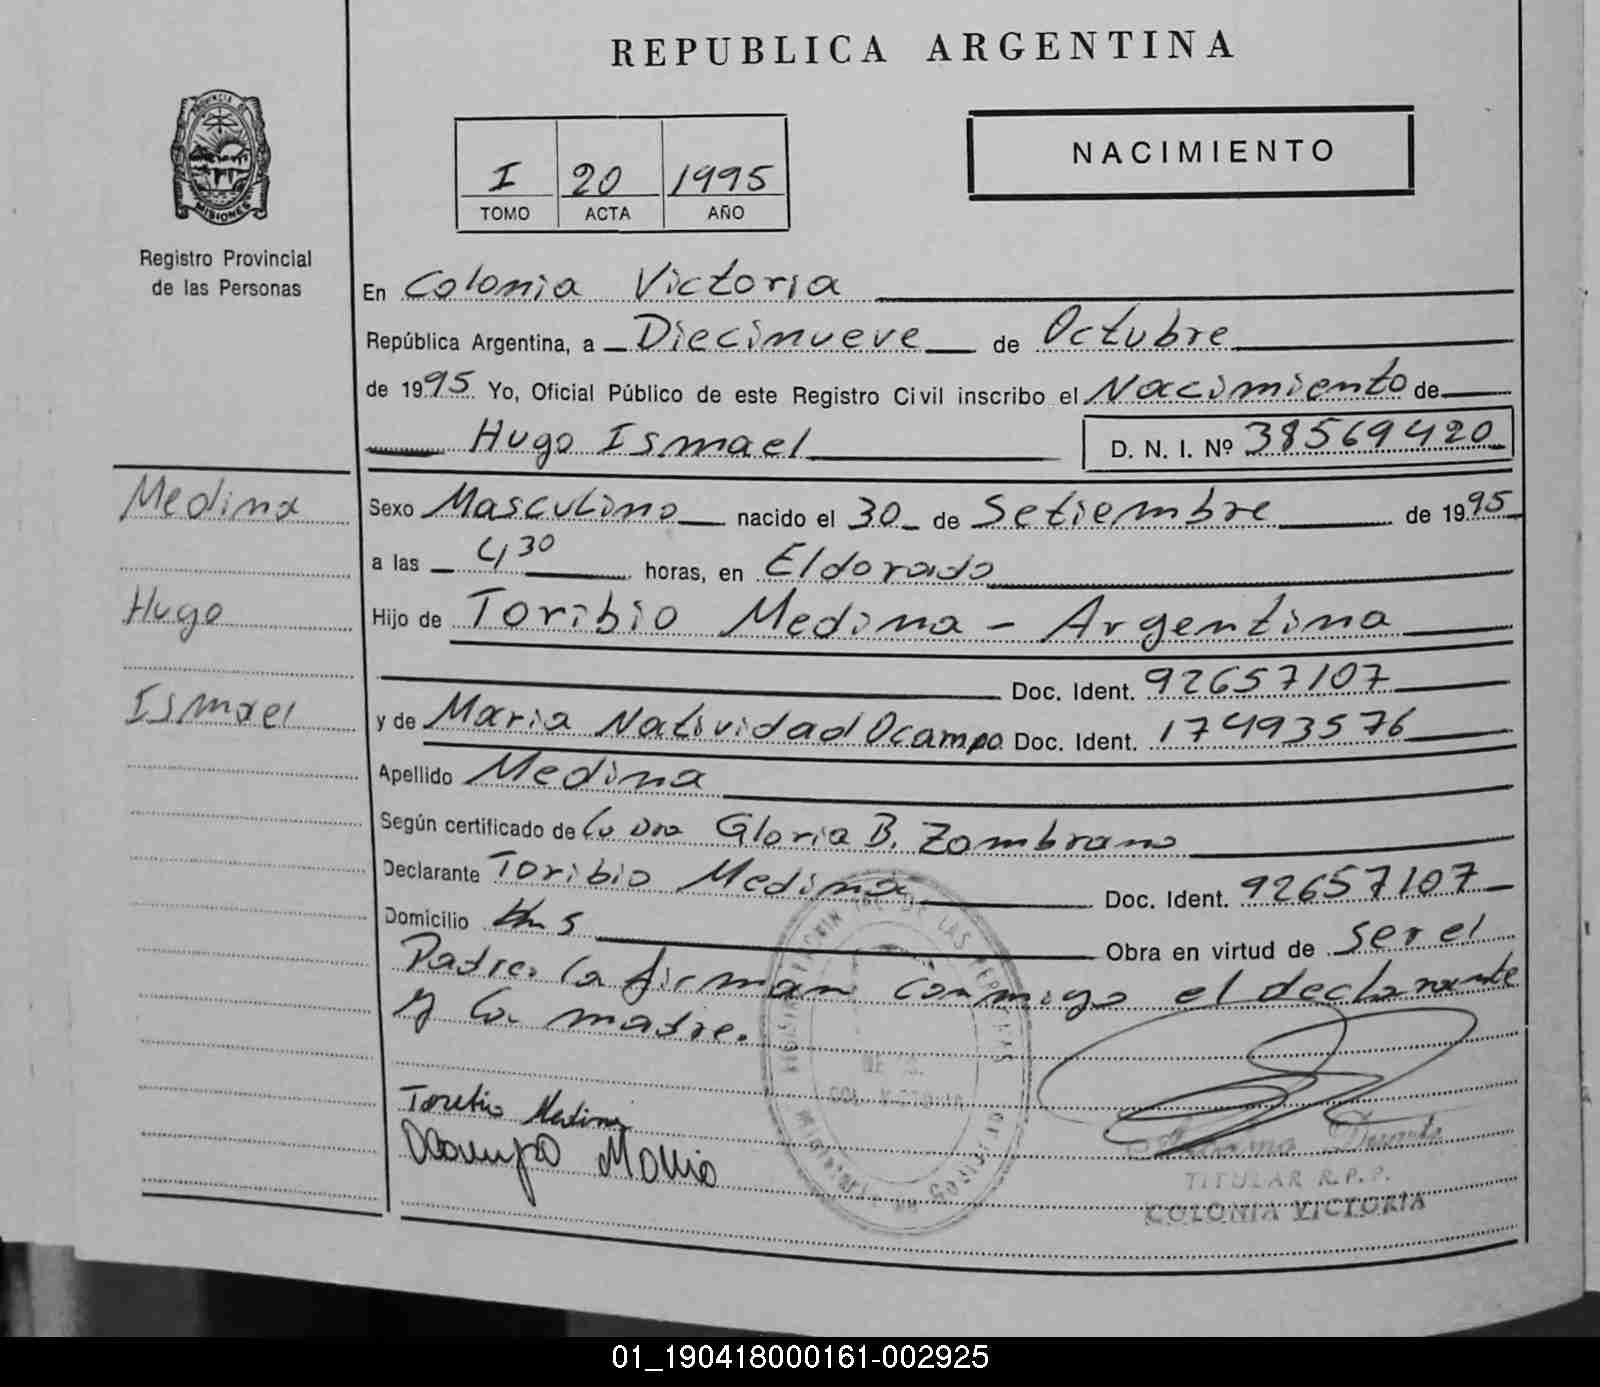 REPUBLICA ARGENTINA
PROVINCIA DE
MISIONES
Registro Provincial
de las Personas
I 20 1995
TOMO ACTA AÑO
NACIMIENTO
En Colonia Victoria
República Argentina, a Diecinueve de Octubre
de 1995 Yo, Oficial Público de este Registro Civil inscribo el Nacimiento de
Hugo Ismael D. N. I. Nº 38569420
Medina
Hugo
Ismael
Sexo Masculino nacido el 30 de Setiembre de 1995
a las 4,30 horas, en Eldorado
Hijo de Toribio Medina - Argentina
Doc. Ident. 92657107
y de Maria Natividad Ocampo Doc. Ident. 17493576
Apellido Medina
Según certificado de la Dra Gloria B. Zambrano
Declarante Toribio Medina Doc. Ident. 92657107
Domicilio Km 5 Obra en virtud de ser el
Padre. La firman conmigo el declarante
y la madre.
Toribio Medina
Ocampo Maria
LAS PERSONAS
TITULAR R.P.P.
COLONIA VICTORIA
01_190418000161-002925